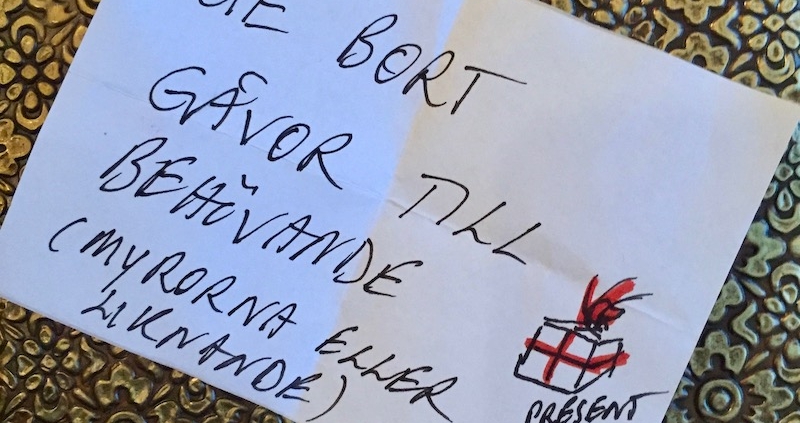 GE BORT
GÅVOR TILL
BEHÖVANDE
(MYRORNA ELLER
LIKNANDE)
PRESENT